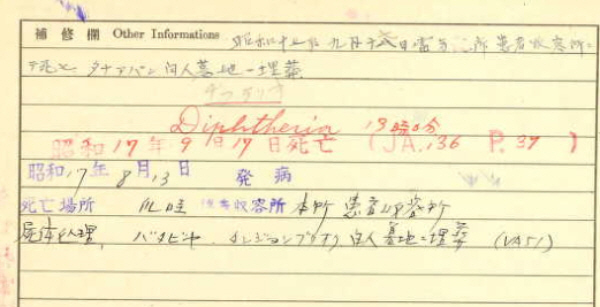 補修欄 Other Informations 昭和十七年九月十 日 所患者収容所ニ
テ死亡 タナアバン白人墓地ニ埋葬
ヂフテリヤ
Diphtheria 13時0分
昭和17年9月17日死亡 (JA. 136 P. 37 )
昭和17年8月13日 発病
死亡場所 爪哇 俘虜収容所 本所 患者収容所
屍体処理、バタビヤ、 白人墓地ニ埋葬 (VA51)